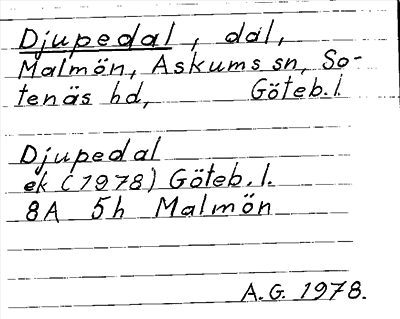 Djupedal, dal,
Malmön, Askums sn, So-
tenäs hd, Göteb. l.
Djupedal
ek (1978) Göteb. l.
8A 5h Malmön
A.G. 1978.